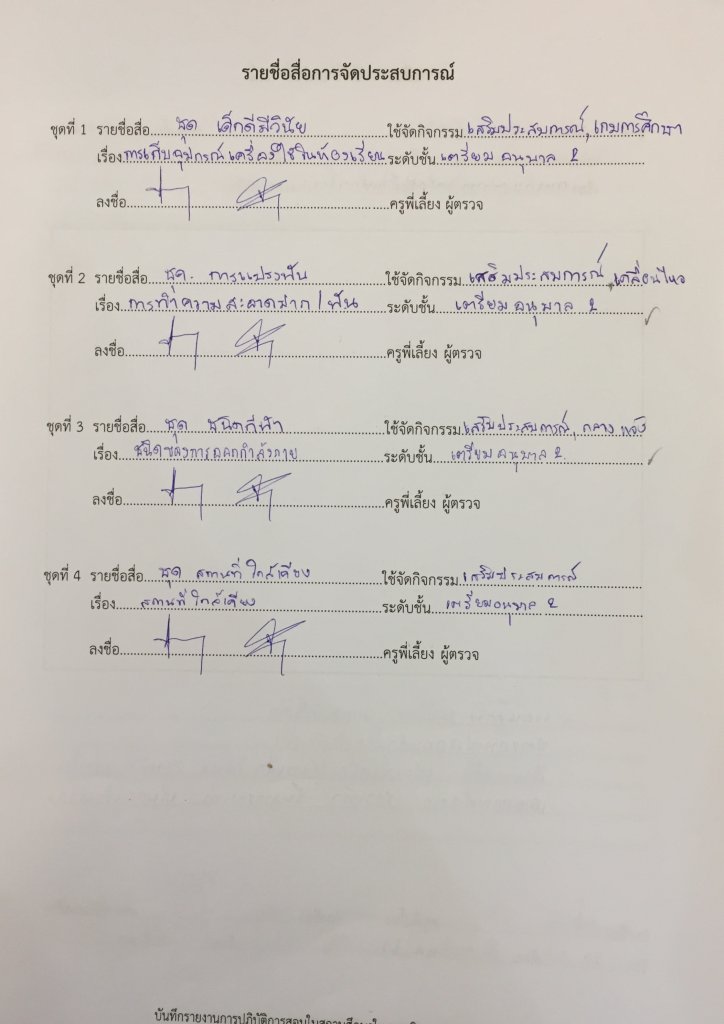 รายชื่อสื่อการจัดประสบการณ์
ชุดที่ 1 รายชื่อสื่อ ชุด เด็กดีมีวินัย ใช้จัดกิจกรรม เสริมประสบการณ์, เกมการศึกษา
เรื่อง การเก็บอุปกรณ์เครื่องใช้ในห้องเรียน ระดับชั้น เตรียมอนุบาล 2
ลงชื่อ ครูพี่เลี้ยง ผู้ตรวจ
ชุดที่ 2 รายชื่อสื่อ ชุด. การแปรงฟัน ใช้จัดกิจกรรม เสริมประสบการณ์, เคลื่อนไหว
เรื่อง การทำความสะอาดปาก / ฟัน ระดับชั้น เตรียมอนุบาล 2
ลงชื่อ ครูพี่เลี้ยง ผู้ตรวจ
ชุดที่ 3 รายชื่อสื่อ ชุด ชนิดกีฬา ใช้จัดกิจกรรม เสริมประสบการณ์, กลางแจ้ง
เรื่อง ชนิดของการออกกำลังกาย ระดับชั้น เตรียมอนุบาล 2
ลงชื่อ ครูพี่เลี้ยง ผู้ตรวจ
ชุดที่ 4 รายชื่อสื่อ ชุด สถานที่ใกล้เคียง ใช้จัดกิจกรรม เสริมประสบการณ์
เรื่อง สถานที่ใกล้เคียง ระดับชั้น เตรียมอนุบาล 2
ลงชื่อ ครูพี่เลี้ยง ผู้ตรวจ
บันทึกรายงานการปฏิบัติการสอนในสถานศึกษา